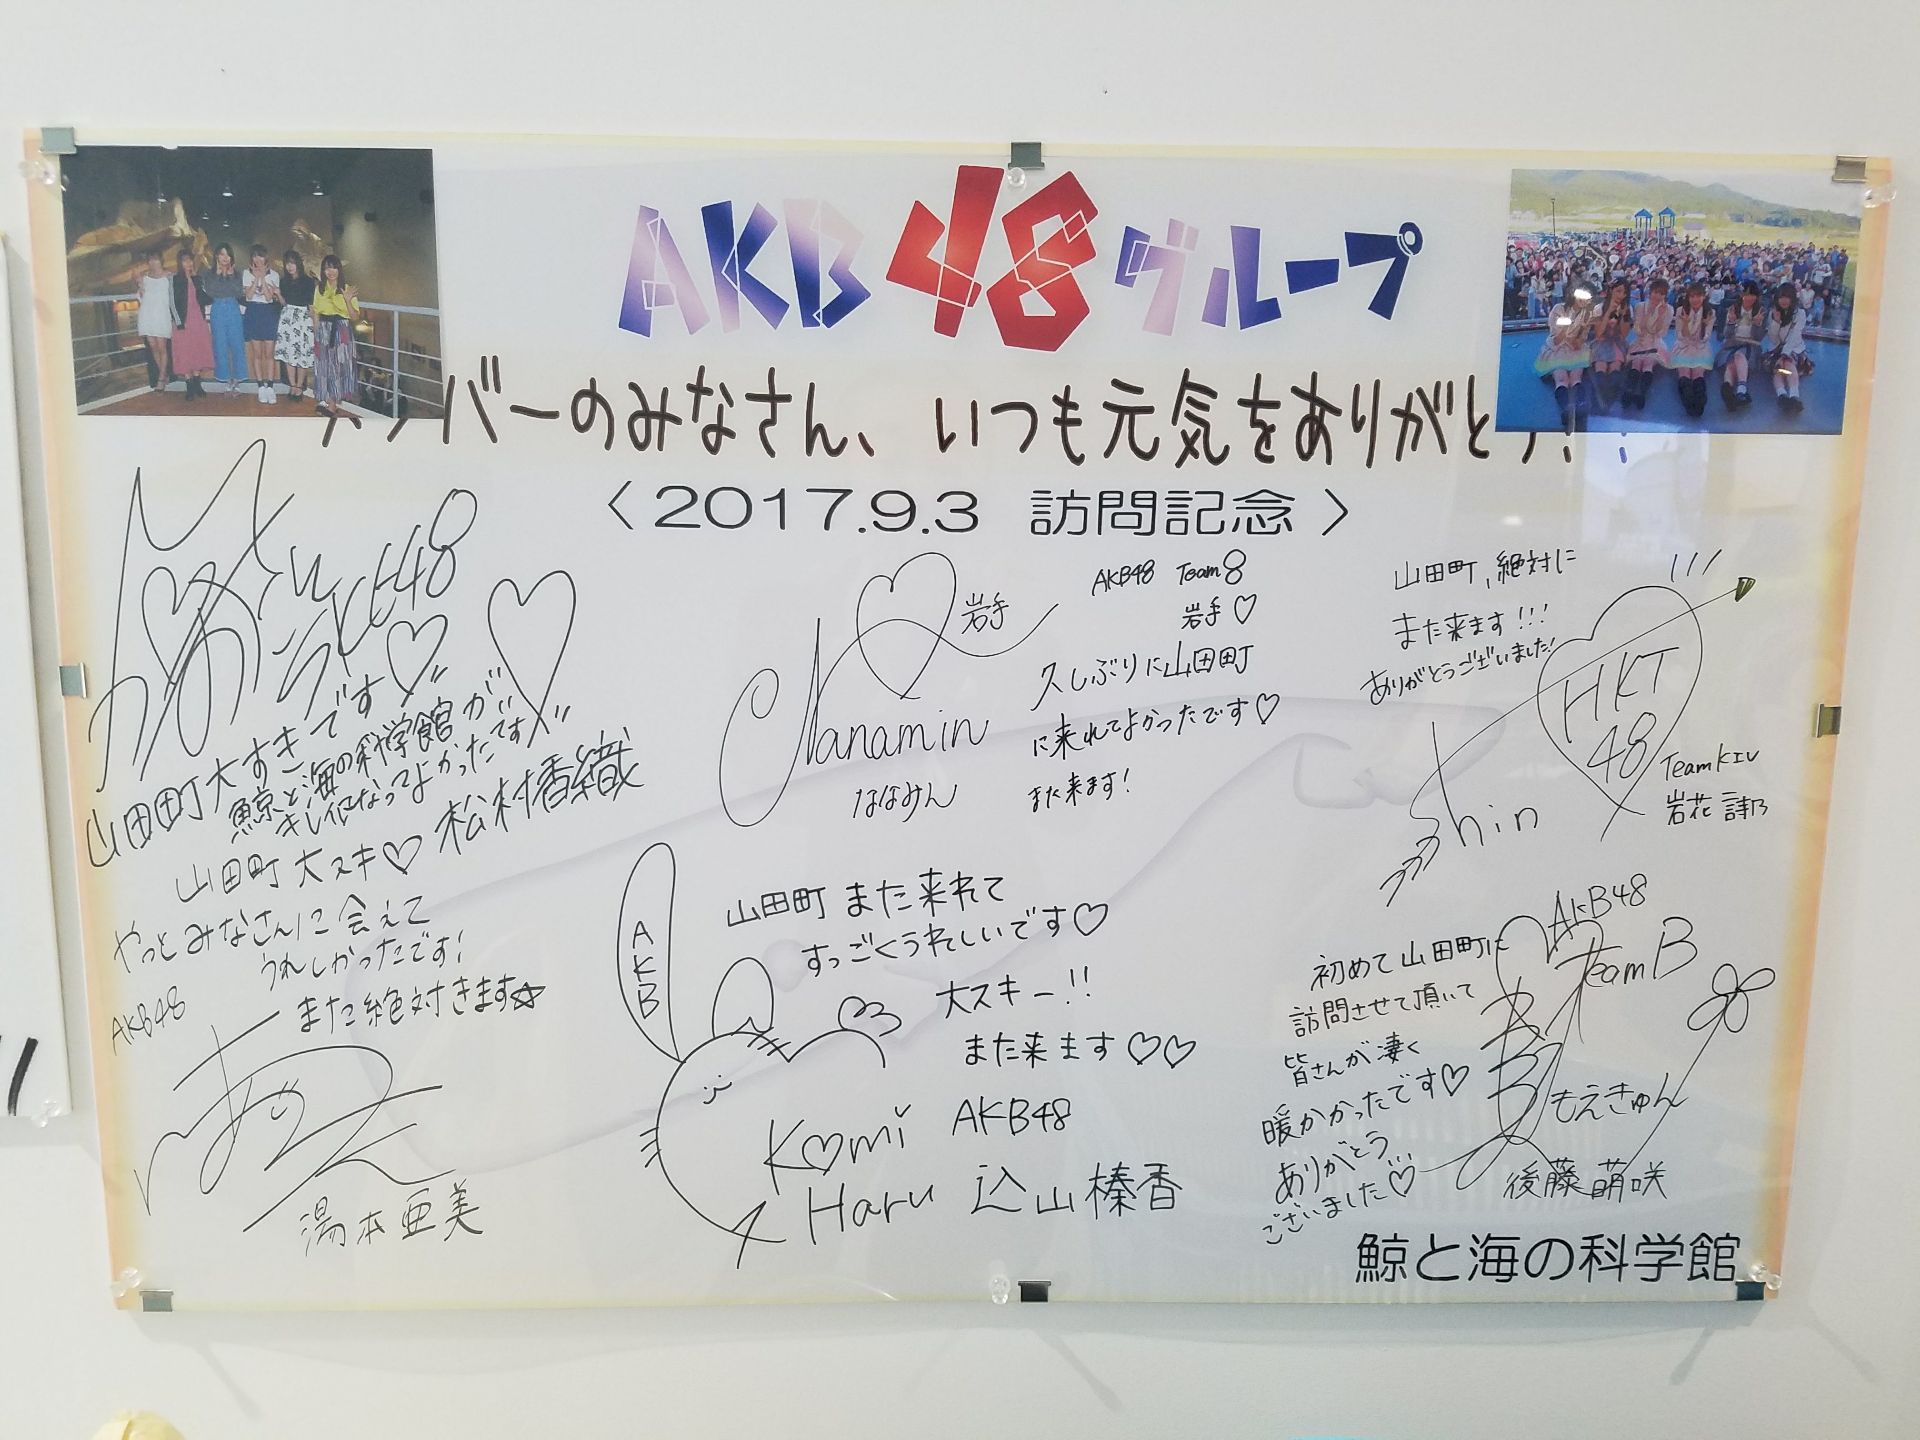 AKB48グループ
メンバーのみなさん、いつも元気をありがとう!!
〈2017.9.3 訪問記念〉
SKE48
山田町大すきです♡
鯨と海の科学館が
キレイになってよかったです
山田町大スキ♡松村香織
やっとみなさんに会えて
うれしかったです!
また絶対きます☆
AKB48
湯本亜美
岩手
Nanamin
ななみん
AKB48 Team8
岩手♡
久しぶりに山田町
に来れてよかったです♡
また来ます!
山田町、絶対に
また来ます!!!
ありがとうございました!
HKT
48
TeamKIV
岩花詩乃
Shin
AKB
山田町また来れて
すっごくうれしいです♡
大スキー!!
また来ます♡♡
Komi
Haru
AKB48
込山榛香
初めて山田町に
訪問させて頂いて
皆さんが凄く
暖かかったです♡
ありがとう
ございました♡
AKB48
TeamB
もえきゅん
後藤萌咲
鯨と海の科学館